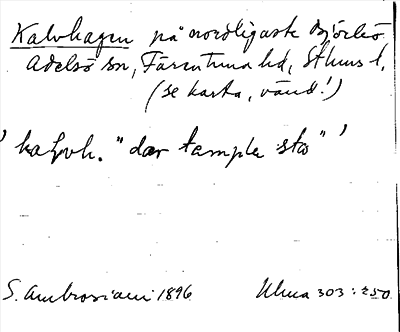 Kalvhagen på nordligaste Björkö
Adelsö sn, Färentuna hd, Sthlms l.
(se karta, vänd!)
'kaɫvh. "där tamplə sto"'
S. Ambrosiani 1896 Uluma 303:250.